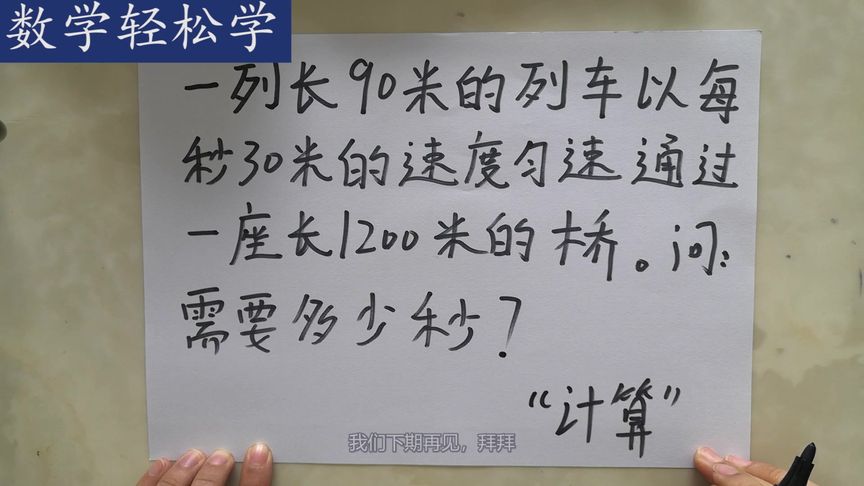 数学轻松学
一列长90米的列车以每
秒30米的速度匀速通过
一座长1200米的桥。问:
需要多少秒?
“计算”
我们下期再见，拜拜